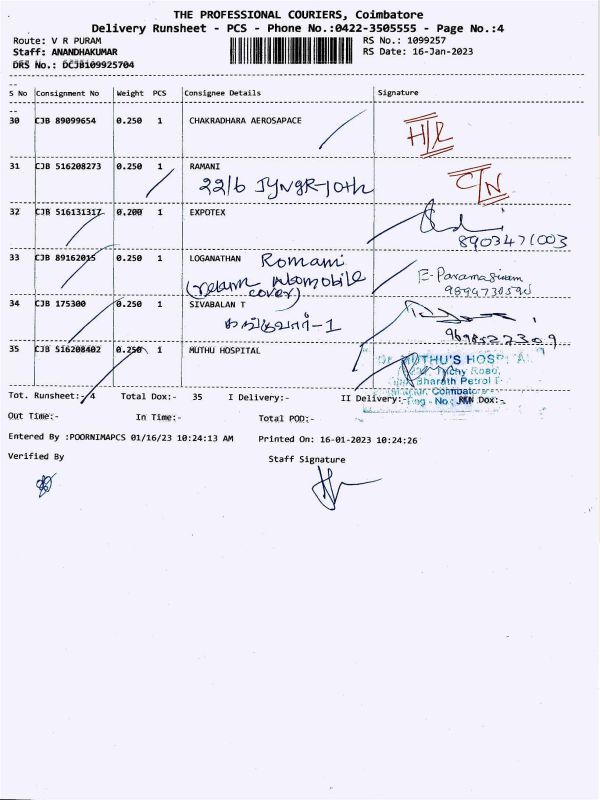 THE PROFESSIONAL COURIERS, Coimbatore
Delivery Runsheet - PCS - Phone No.:0422-3505555 - Page No.:4
Route: V R PURAM RS No.: 1099257
Staff: ANANDHAKUMAR RS Date: 16-Jan-2023
DRS No.: DCJB109925704
S No Consignment No Weight PCS Consignee Details Signature
30 CJB 89099654 0.250 1 CHAKRADHARA AEROSAPACE
H/L
31 CJB 516208273 0.250 1 RAMANI
22/6 C/N
32 CJB 516131317 0.200 1 EXPOTEX
8903471003
33 CJB 89162015 0.250 1 LOGANATHAN Romani
(return Automobile E-Paramasivam
cover)
34 CJB 175300 0.250 1 SIVABALAN T
35 CJB 516208402 0.250 1 MUTHU HOSPITAL
MUTHU'S HOSPITAL
Trichy Road,
Bharath Petrol
Coimbatore
Tot. Runsheet:- 4 Total Dox:- 35 I Delivery:- II Delivery:- Dox:-
Out Time:- In Time:- Total POD:-
Entered By :POORNIMAPCS 01/16/23 10:24:13 AM Printed On: 16-01-2023 10:24:26
Verified By Staff Signature